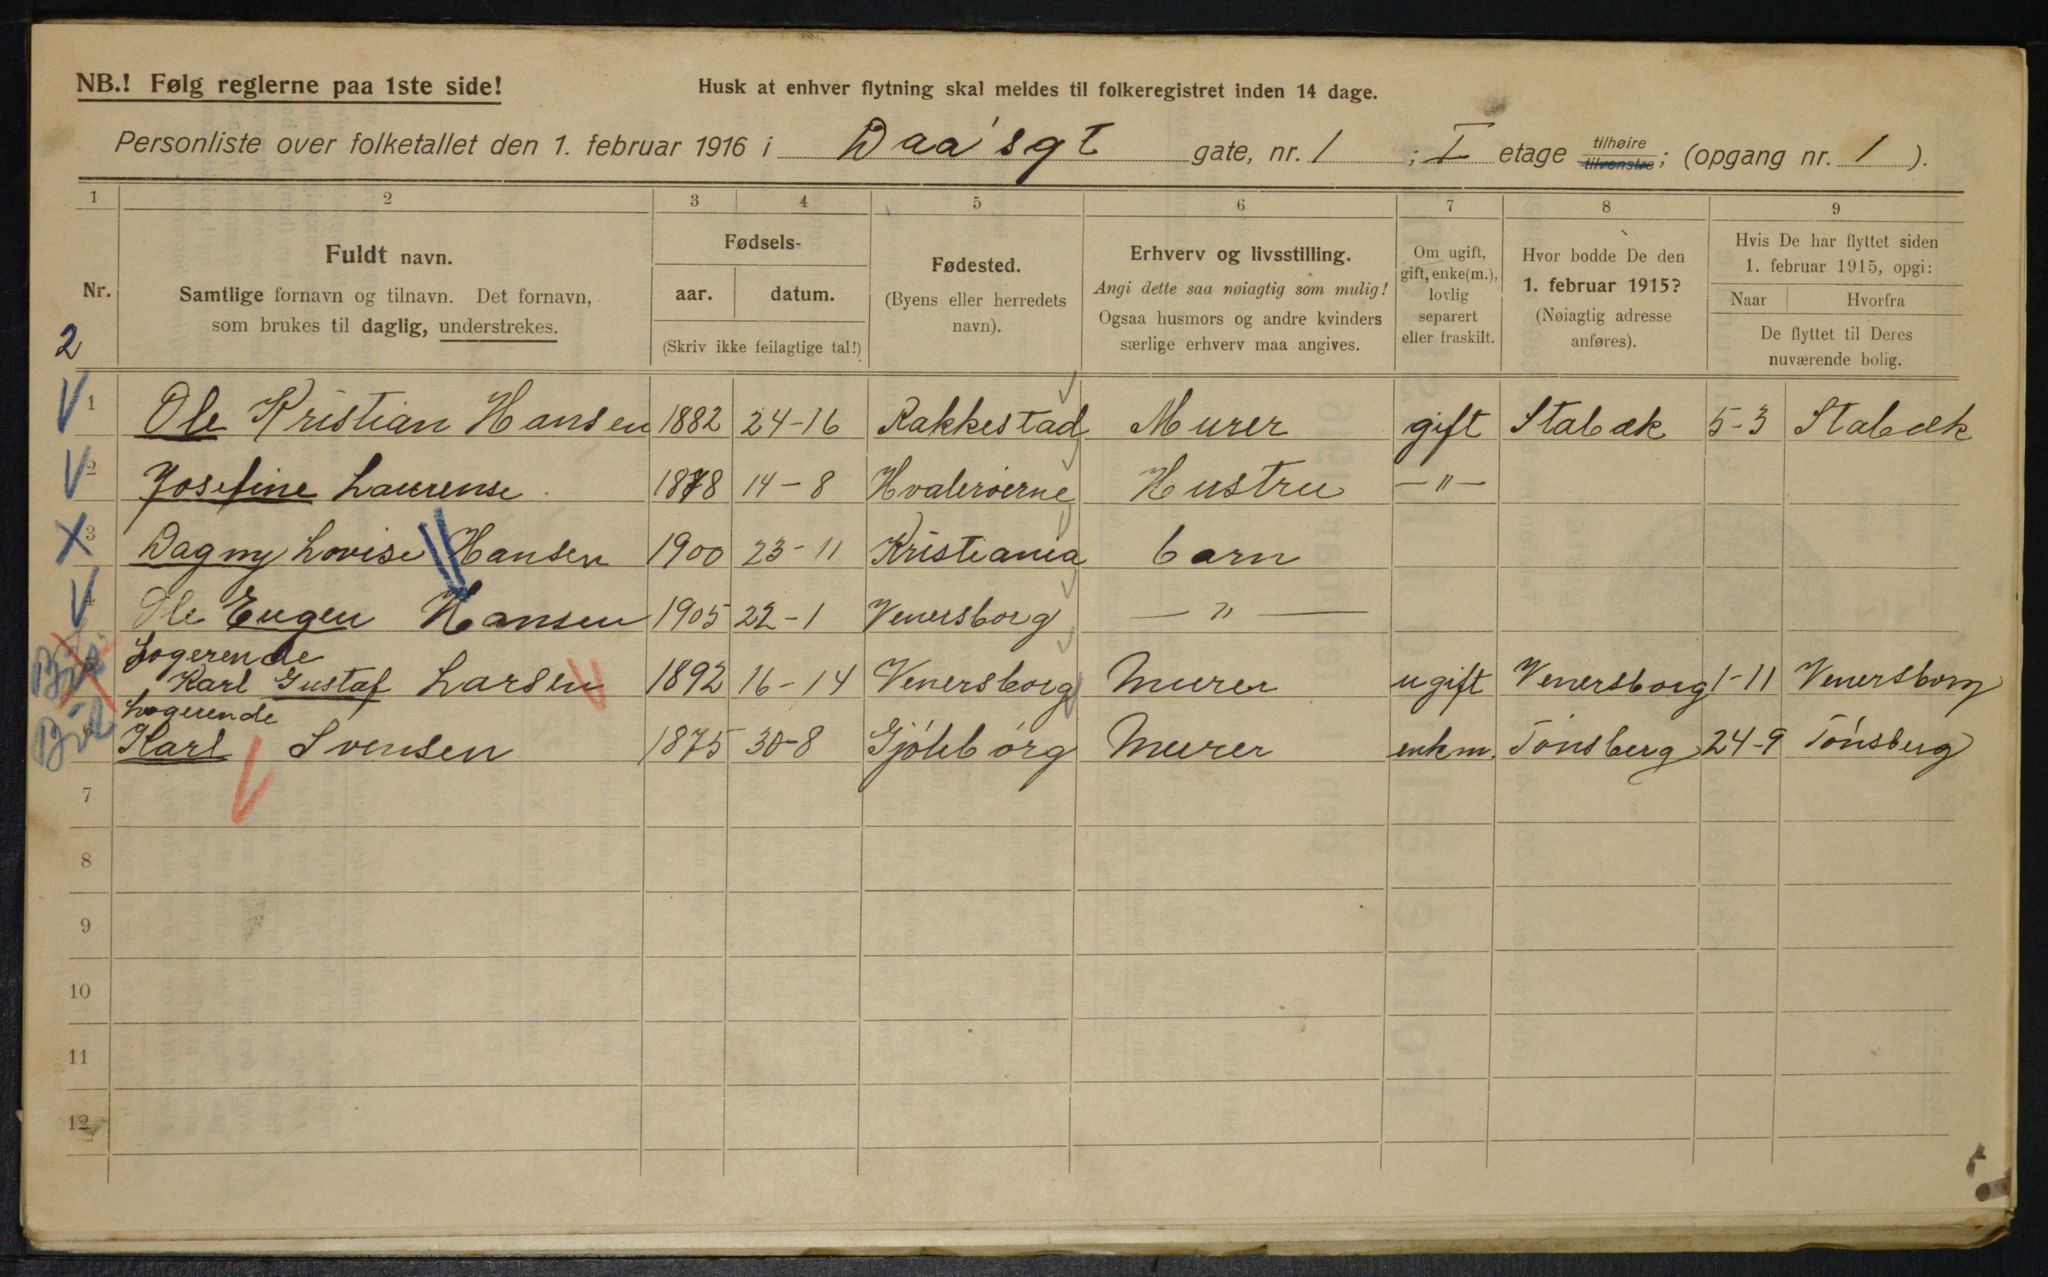 NB.! Følg reglerne paa 1ste side!
Husk at enhver flytning skal meldes til folkeregistret inden 14 dage.
Personliste over folketallet den 1. februar 1916 i Daa'sgt gate, nr. 1 ; I etage tilhøire tilvenstre; (opgang nr. 1 ).
1 2 3 4 5 6 7 8 9
Nr.
2
Fuldt navn.
Samtlige fornavn og tilnavn. Det fornavn,
som brukes til daglig, understrekes.
Fødsels-
aar. datum.
(Skriv ikke feilagtige tal!)
Fødested.
(Byens eller herredets
navn).
Erhverv og livsstilling.
Angi dette saa nøiagtig som mulig!
Ogsaa husmors og andre kvinders
særlige erhverv maa angives.
Om ugift,
gift, enke(m.),
lovlig
separert
eller fraskilt.
Hvor bodde De den
1. februar 1915?
(Nøiagtig adresse
anføres).
Hvis De har flyttet siden
1. februar 1915, opgi:
Naar Hvorfra
De flyttet til Deres
nuværende bolig.
1 Ole Kristian Hansen 1882 24-16 Rakkestad Murer gift Stabæk 5-3 Stabæk
2 Josefine Laurense 1878 14-8 Hvalerøerne Hustru —"—
3 Dagny Lovise Hansen 1900 23-11 Kristiania barn
4 Ole Eugen Hansen 1905 22-1 Venersborg — " —
Logerende
Karl Gustaf Larsen 1892 16-14 Venersborg Murer ugift Venersborg 1-11 Venersborg
Logerende
Karl Svensen 1875 30-8 Murer enkm. Tønsberg 24-9 Tønsberg
7
8
9
10
11
12